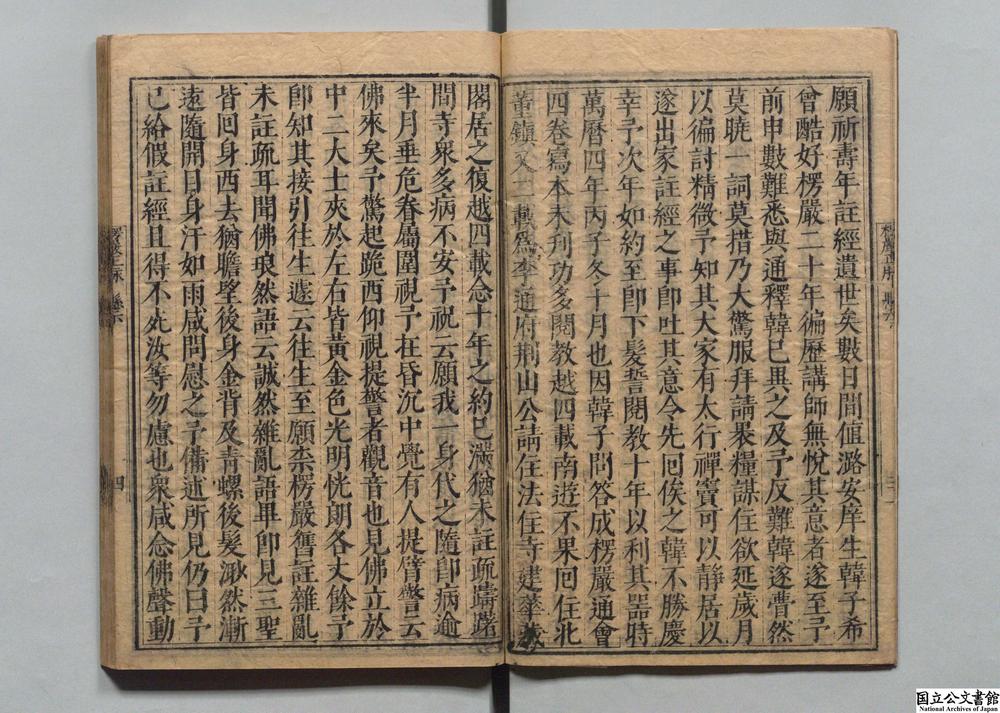 願祈壽年註經遺世矣數日間值潞安庠生韓子希
曾酷好楞嚴二十年徧歷講師無悅其意者遂至予
前申數難悉與通釋韓巳異之及予反難韓遂瞢然
莫曉一詞莫措乃大驚服拜請褁糧謀住欲延歲月
以徧討精微予知其大家有太行禪竇可以靜居以
遂出家註經之事卽吐其意令先囘俟之韓不勝慶
幸予次年如約至卽下髮誓閱教十年以利其噐時
萬曆四年丙子冬十月也因韓子問答成楞嚴通會
四卷寫本未刋功多閱教越四載南遊不果囘住北
董鎮又二載爲李通府荆山公請住法住寺建華藏
閣居之復越四載念十年之約巳滿猶未註疏躊躇
間寺衆多病不安予祝云願我一身代之隨卽病逾
半月垂危眷屬圍視予在昏沉中覺有人提臂警云
佛來矣予驚起跪西仰視提警者觀音也見佛立於
中二大士夾於左右皆黃金色光明恍朗各丈餘予
卽知其接引往生遽云往生至願柰楞嚴舊註雜亂
未註疏耳聞佛琅然語云誠然雜亂語畢卽見三聖
皆囘身西去猶瞻望後身金背及青螺後髮渺然漸
遠隨開目身汗如雨咸問慰之予備述所見仍曰予
巳給假註經且得不死汝等勿慮也衆咸念佛聲動
三
四
国立公文書館
National Archives of Japan